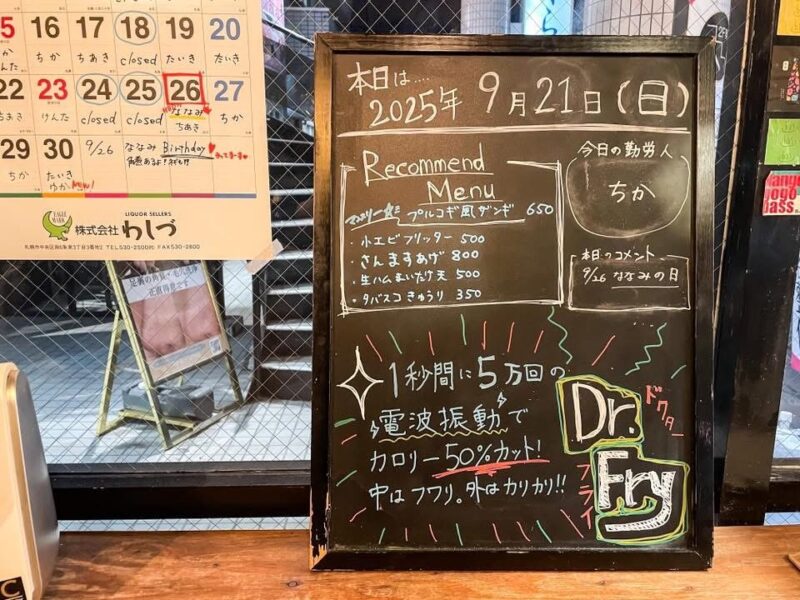 5 16 17 18 19 20
んた ちか ちあき closed たいき たいき
22 23 24 25 26 27
ちあき けんた closed closed ななみ ちか
ちあき
29 30 9/26 ななみ Birthday
ちか たいき
ゆか
EAGLE MARK
LIQUOR SELLERS
株式会社 わしづ
TEL530-2500㈹ FAX530-2800
本日は....
2025年 9月21日(日)
Recommend
Menu
プルコギ風ザンギ 650
・小エビフリッター 500
・さんますあげ 800
・生ハムまいたけ天 500
・タバスコきゅうり 350
今日の勤労人
ちか
本日のコメント
9/26 ななみの日
1秒間に5万回の
電波振動で
カロリー50%カット!
中はフワリ。外はカリカリ!!
Dr.
ドクター
Fry
フライ